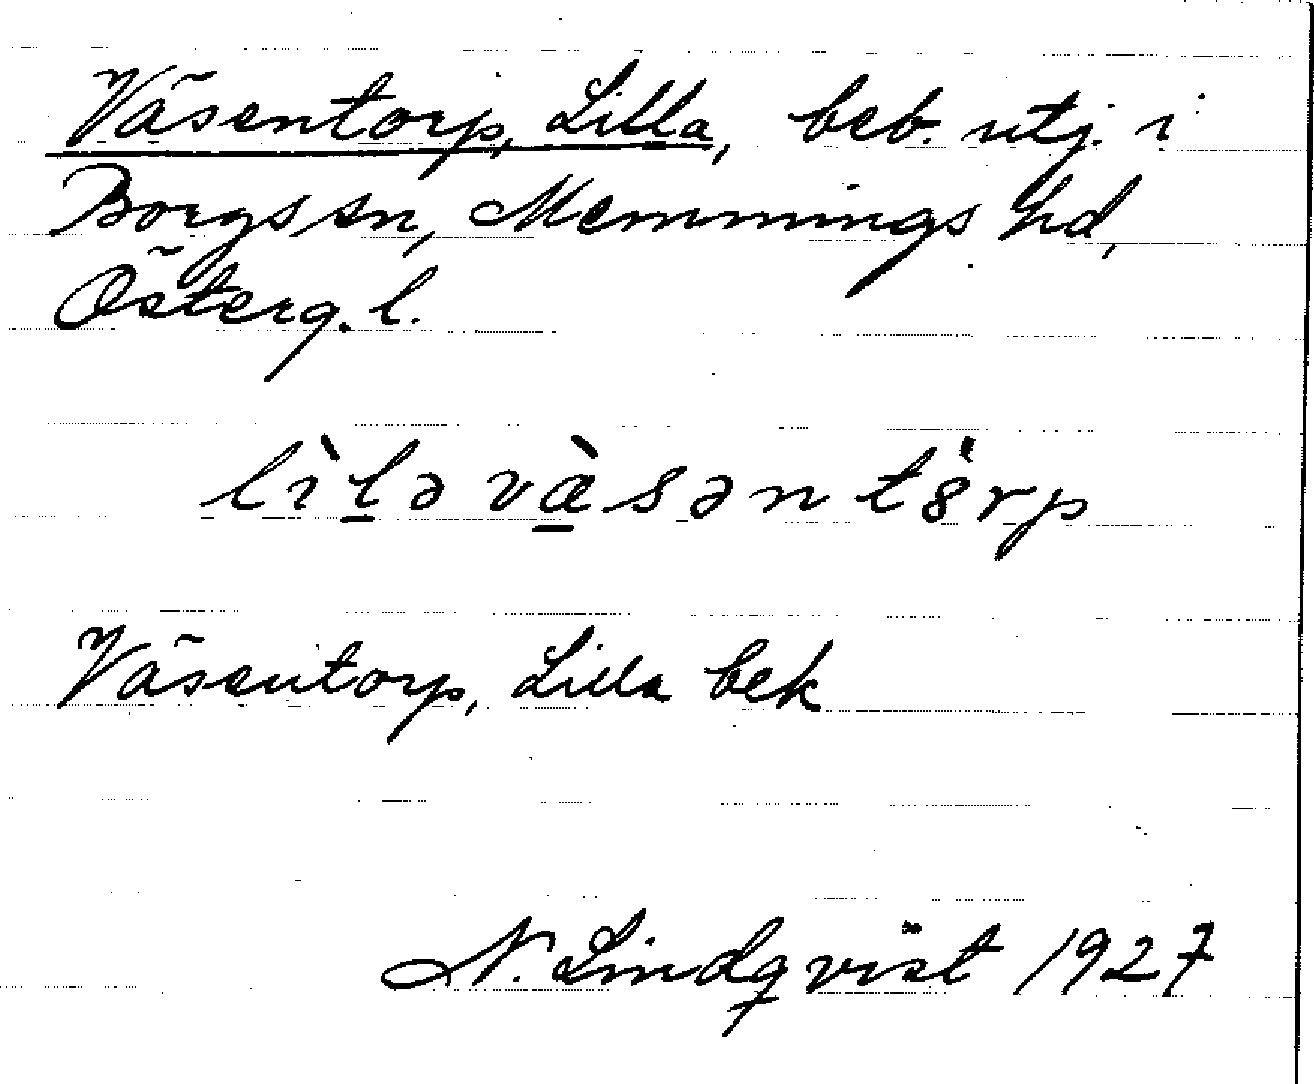 Väsentorp, Lilla, beb. utj. i
Borgs sn, Memmings hd,
Österg. l.
lìḻə væ̱̀sən tȯ̀rp
Väsentorp, Lilla bek
N. Lindqvist 1927